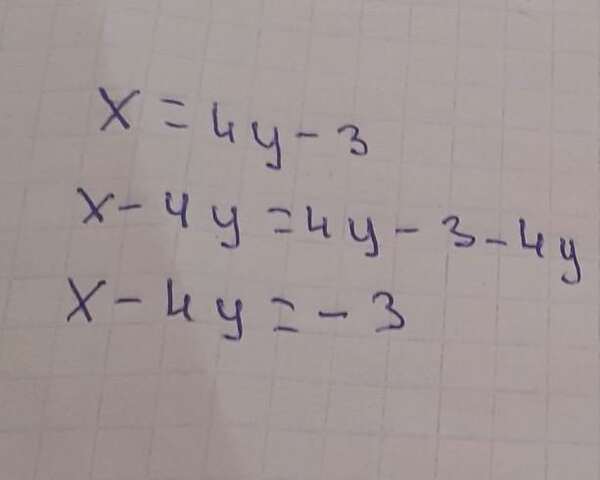 x = 4y - 3
x - 4y = 4y - 3 - 4y
x - 4y = - 3